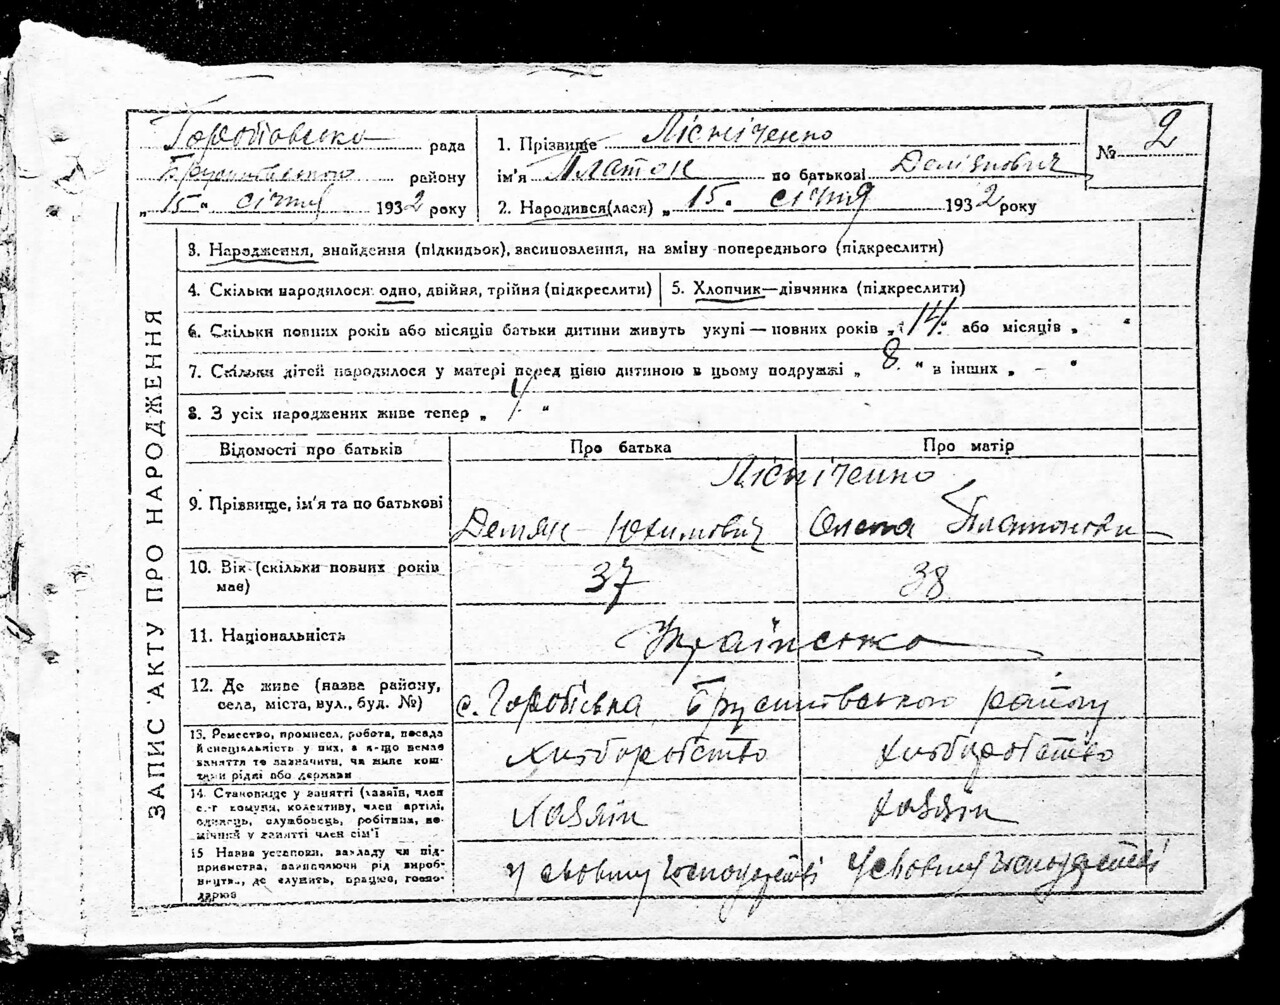 Горобівська рада
Брусилівського району
„ 15 “ січня 1932 року
1. Прізвище Лісніченко
ім'я Платон по батькові Деміянович
2. Народився(лася) „ 15 “ січня 1932 року
№ 2
ЗАПИС АКТУ ПРО НАРОДЖЕННЯ
3. Народження, знайдення (підкидьок), засиновлення, на зміну попереднього (підкреслити)
4. Скільки народилося: одно, двійня, трійня (підкреслити)
5. Хлопчик—дівчинка (підкреслити)
6. Скільки повних років або місяців батьки дитини живуть укупі — повних років „ 14 “ або місяців „ “
7. Скільки дітей народилося у матері перед цією дитиною в цьому подружжі „ 8 “ в інших „ – “
8. З усіх народжених живе тепер „ “
Відомості про батьків
Про батька
Про матір
9. Прізвище, ім'я та по батькові
Лісніченко
Демян Юхимович
Олена Платонови
10. Вік (скільки повних років має)
37
38
11. Національність
Українська
12. Де живе (назва району,
села, міста, вул., буд. №)
с. Горобівка, Брусилівського району
13. Ремество, промисел, робота, посада
й спеціальність у них, а якщо немає
заняття то зазначити, чи живе кош-
тами рідні або держави
Хліборобство
Хліборобство
14. Становище у занятті (хазяїн, член
с.-г комуни, колективу, член артілі,
одинець, службовець, робітник, по-
мічний у занятті член сім'ї
Хазяїн
Хазяїн
15 Назва установи, закладу чи під-
приємства, зазначаючи рід вироб-
ництв., де служить, працює, госпо-
дарює
У своєму господарстві
У своєму господарстві